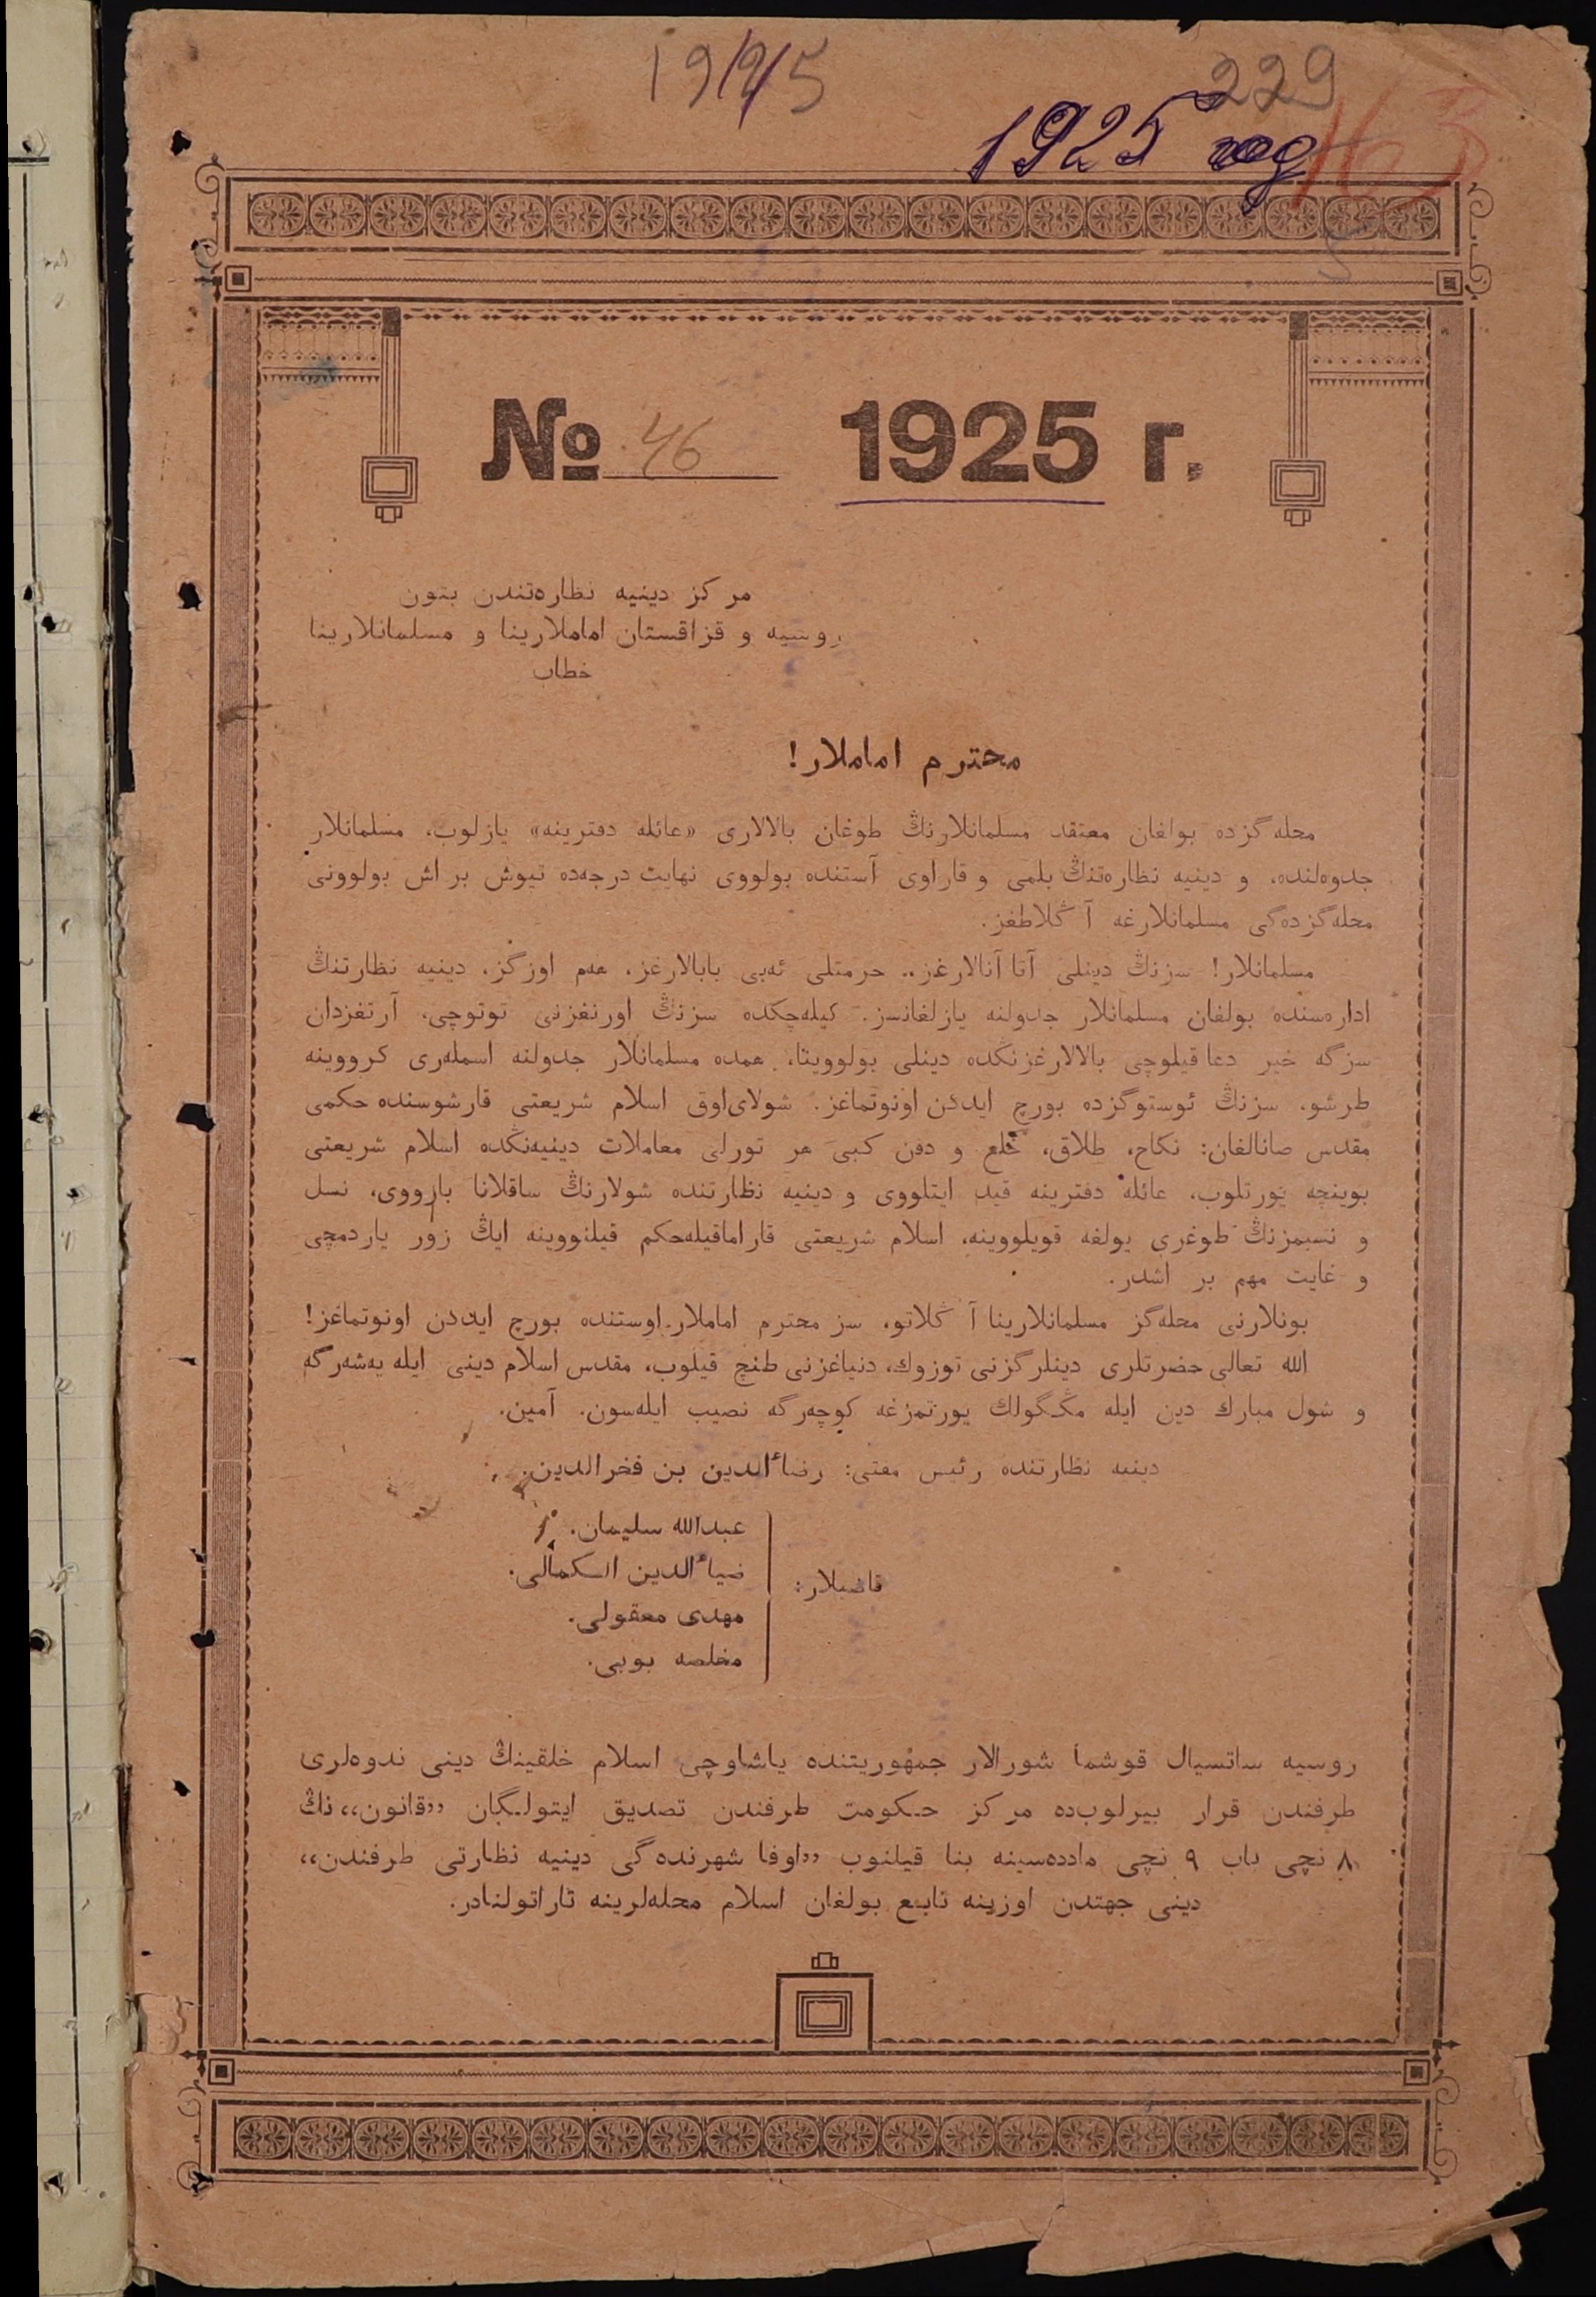 1925
229
1925 год
№ 46 1925 г.
مركز دينيه نظاره‌تندن بتون
روسيه و قزاقستان اماملارينا و مسلمانلارينا
خطاب
محترم اماملار!
محله‌گزده بولغان معتقد مسلمانلارنڭ طوغان بالالارى «عائله دفترينه» يازلوب، مسلمانلار
جدوه‌لنده، و دينيه نظاره‌تنڭ بلمى و قاراوى آستنده بولووى نهايت درجه‌ده تيوش بر اش بولوونى
محله‌گزده‌گى مسلمانلارغه آ ڭلاطغز.
مسلمانلار! سزنڭ دينلى آتا آنالارغز، حرمتلى ئه‌بى بابالارغز، هم اوزگز، دينيه نظارتنڭ
اداره‌سنده بولغان مسلمانلار جدولنه يازلغانسز. كيله‌چكده سزنڭ اورنغزنى توتوچى، آرتغزدان
سزگه خير دعا قيلوچى بالالارغزنڭده دينلى بولووينا، همده مسلمانلار جدولنه اسمله‌رى كرووينه
طرشو، سزنڭ ئوستوگزده بورچ ايدكن اونوتماغز. شولاى‌اوق اسلام شريعتى قارشوسنده حكمى
مقدس صانالغان: نكاح، طلاق، خلع و دفن كبى هر تورلى معاملات دينيه‌نڭده اسلام شريعتى
بوينچه يورتلوب، عائله دفترينه قيد ايتلووى و دينيه نظارتنده شولارنڭ ساقلانا بارووى، نسل
و نسبمزنڭ طوغرى يولغه قويلووينه، اسلام شريعتى قاراماقيله‌حكم قيلنووينه ايڭ زور ياردمچى
و غايت مهم بر اشدر.
بونلارنى محله‌گز مسلمانلارينا آ ڭلاتو، سز محترم اماملار اوستنده بورچ ايدكن اونوتماغز!
الله تعالى حضرتلرى دينلرگزنى توزوك، دنياغزنى طنچ قيلوب، مقدس اسلام دينى ايله يه‌شه‌رگه
و شول مبارك دين ايله مڭگولك يورتمزغه كوچه‌رگه نصيب ايله‌سون. آمين.
دينيه نظارتنده رئيس مفتى: رضاءالدين بن فخرالدين.
قاضيلار:
عبدالله سليمان.
ضياءالدين الكمالى.
مهدى معقولى.
مخلصه بوبى.
روسيه ساتسيال قوشما شورالار جمهوريتنده ياشاوچى اسلام خلقينڭ دينى ندوه‌لرى
طرفندن قرار بيرلوب‌ده مركز حكومت طرفندن تصديق ايتولگان „قانون“نڭ
٨ نچى باب ٩ نچى مادده‌سينه بنا قيلنوب „اوفا شهرنده‌گى دينيه نظارتى طرفندن“
دينى جهتدن اوزينه تابع بولغان اسلام محله‌لرينه تاراتولنادر.